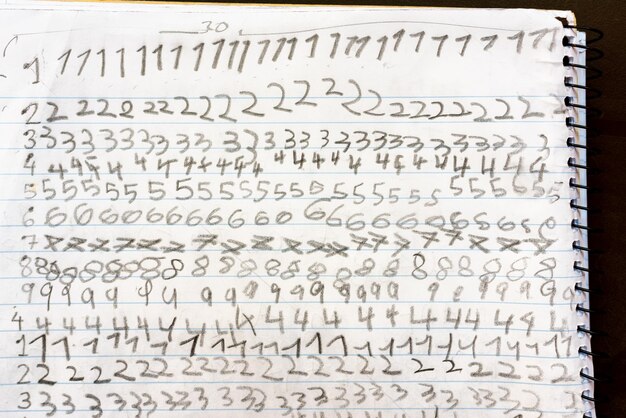 30
1 1 1 1 1 1 1 1 1 1 1 1 1 1 1 1 1 1 1 1 1 1 1 1 1 1 1 1 1 1
2 2 2 2 2 2 2 2 2 2 2 2 2 2 2 2 2 2 2 2 2 2 2 2 2 2
3 3 3 3 3 3 3 3 3 3 3 3 3 3 3 3 3 3 3 3 3 3 3 3 3 3 3 3
4 4 4 4 4 4 4 4 4 4 4 4 4 4 4 4 4 4 4 4 4 4 4 4 4 4
5 5 5 5 5 5 5 5 5 5 5 5 5 5 5 5 5 5 5 5 5 5 5 5 5 5 5 5
6 6 6 6 6 6 6 6 6 6 6 6 6 6 6 6 6 6 6 6 6 6 6 6 6 6
7 7 7 7 7 7 7 7 7 7 7 7 7 7 7 7 7 7 7 7 7 7
8 8 8 8 8 8 8 8 8 8 8 8 8 8 8 8 8 8 8 8 8 8 8 8
9 9 9 9 9 9 9 9 9 9 9 9 9 9 9 9 9 9 9 9 9 9 9 9
4 4 4 4 4 4 4 4 4 4 4 4 4 4 4 4 4 4 4 4 4 4
1 1 1 1 1 1 1 1 1 1 1 1 1 1 1 1 1 1 1 1 1 1 1 1 1 1
2 2 2 2 2 2 2 2 2 2 2 2 2 2 2 2 2 2 2 2 2 2 2 2 2
3 3 3 3 3 3 3 3 3 3 3 3 3 3 3 3 3 3 3 3 3 3 3 3 3 3